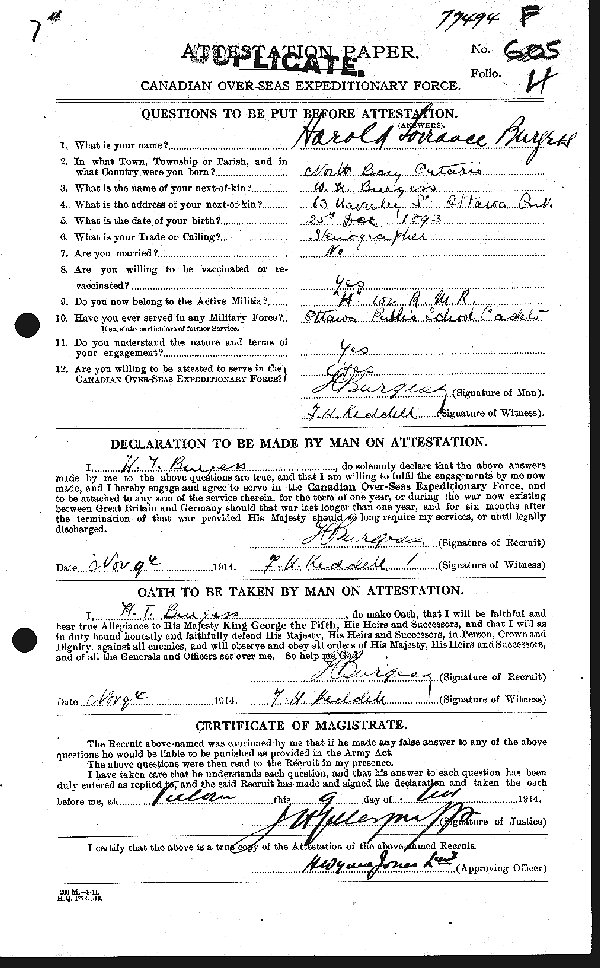 7th
77494 F
ATTESTATION PAPER.
DUPLICATE.
No. 605
Folio. H
CANADIAN OVER-SEAS EXPEDITIONARY FORCE.
QUESTIONS TO BE PUT BEFORE ATTESTATION.
(ANSWERS).
1. What is your name? Harold Torrance Burgess
2. In what Town, Township or Parish, and in
what Country were you born? North Bay Ontario
3. What is the name of your next-of-kin? W. H. Burgess
4. What is the address of your next-of-kin? 63 Waverley St Ottawa Ont
5. What is the date of your birth? 25th Dec 1893
6. What is your Trade or Calling? Stenographer
7. Are you married? No
8. Are you willing to be vaccinated or re-
vaccinated? Yes
9. Do you now belong to the Active Militia? "H" R M R
10. Have you ever served in any Military Force? Ottawa Public School Cadets
If so, state particulars of former Service.
11. Do you understand the nature and terms of
your engagement? Yes
12. Are you willing to be attested to serve in the
CANADIAN OVER-SEAS EXPEDITIONARY FORCE? Yes
H Burgess (Signature of Man).
F. H. Keddell (Signature of Witness).
DECLARATION TO BE MADE BY MAN ON ATTESTATION.
I, H. T. Burgess, do solemnly declare that the above answers
made by me to the above questions are true, and that I am willing to fulfil the engagements by me now
made, and I hereby engage and agree to serve in the Canadian Over-Seas Expeditionary Force, and
to be attached to any arm of the service therein, for the term of one year, or during the war now existing
between Great Britain and Germany should that war last longer than one year, and for six months after
the termination of that war provided His Majesty should so long require my services, or until legally
discharged.
H Burgess (Signature of Recruit)
Date Nov 9th 1914. F. H. Keddell (Signature of Witness)
OATH TO BE TAKEN BY MAN ON ATTESTATION.
I, H. T. Burgess, do make Oath, that I will be faithful and
bear true Allegiance to His Majesty King George the Fifth, His Heirs and Successors, and that I will as
in duty bound honestly and faithfully defend His Majesty, His Heirs and Successors, in Person, Crown and
Dignity, against all enemies, and will observe and obey all orders of His Majesty, His Heirs and Successors,
and of all the Generals and Officers set over me. So help me God.
H Burgess (Signature of Recruit)
Date Nov 9th 1914. F. H. Keddell (Signature of Witness)
CERTIFICATE OF MAGISTRATE.
The Recruit above-named was cautioned by me that if he made any false answer to any of the above
questions he would be liable to be punished as provided in the Army Act.
The above questions were then read to the Recruit in my presence.
I have taken care that he understands each question, and that his answer to each question has been
duly entered as replied to, and the said Recruit has made and signed the declaration and taken the oath
before me, at this 9 day of Nov 1914.
(Signature of Justice)
I certify that the above is a true copy of the Attestation of the above-named Recruit.
Jones Lieut (Approving Officer)